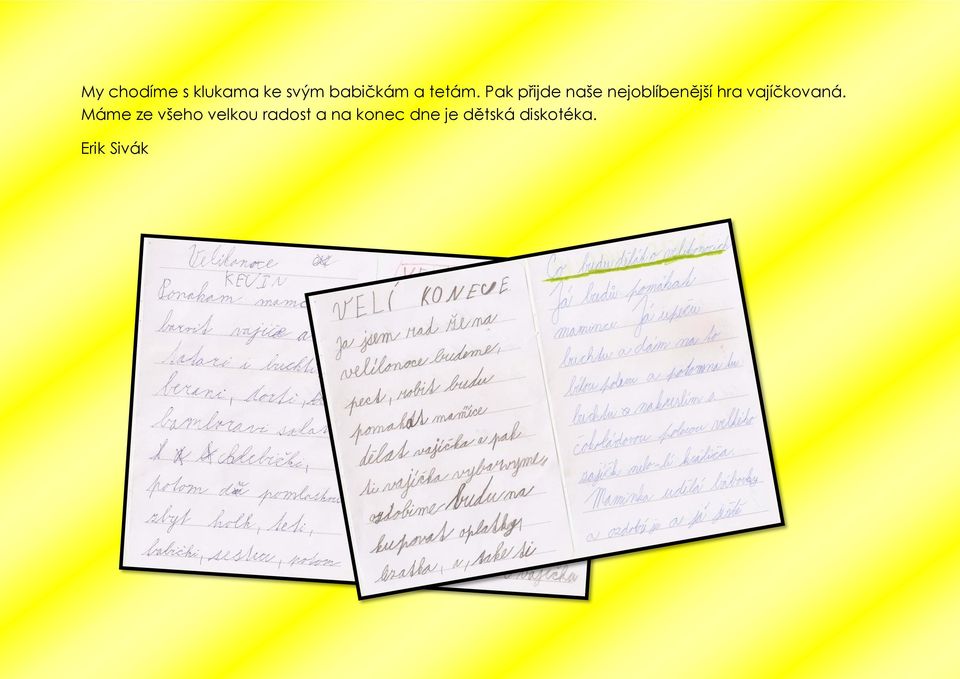 My chodíme s klukama ke svým babičkám a tetám. Pak přijde naše nejoblíbenější hra vajíčkovaná.
Máme ze všeho velkou radost a na konec dne je dětská diskotéka.
Erik Sivák
Velikonoce
KEVIN
Ponaham mamce
barvit vajíce a
i buchti
berani, dorti,
bamboravi sala
chlebički,
potom pomlaskou
zbyt holk, teti,
babički, sestra, potom
VELÍ KONECE
Ja jsem rad že na
velilonoce budeme,
pect, robit budu
pomahat mamice
dělat vajíčka a pak
ti vajíčka vybarvyme,
ozdobime budu na
kupovat oplatky
a, take ti
Co budu dělat o velikonocich
Já budu pomáhat
mamince Já upeču
buchtu a dám na to
bílou polevu a potom na tu
buchtu nakreslim s
čokoládovou polevou velkého
zajíčka nebo li králiča
Maminka udělá bábovky
a ozdobí je a já ještě
vajíčka